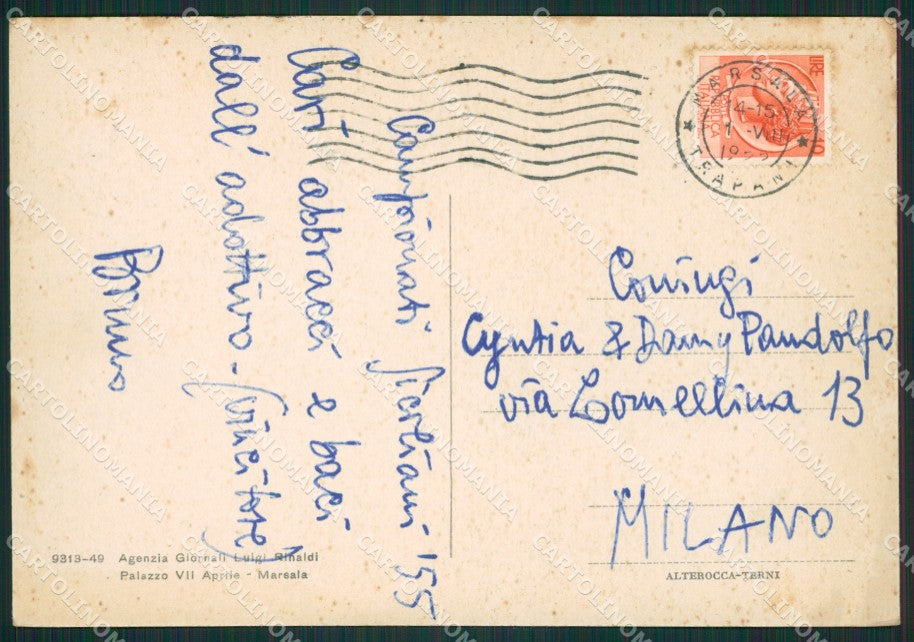 Campionati Siciliani '55
Cari abbracci e baci
dall' adottivo-
Bruno
MARSALA
14-15
1 -VIII
1955
TRAPANI
LIRE
10
Coniugi
Cyntia & Dany Pandolfo
via Lomellina 13
MILANO
9313-49 Agenzia Giornali Luigi Rinaldi
Palazzo VII Aprile - Marsala
ALTEROCCA-TERNI
CARTOLINOMANIA